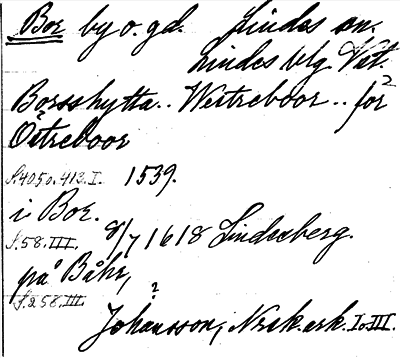 Bor by o. gd. Lindes sn.
Lindes blg. Vät.
Borsshytta.. Westreboor.. for
Östreboor
s. 405 o. 413. I. 1539.
i Bor.
s. 58. III. 8/7 1618 Lindesberg.
på Båhr,
s. 258. III
Johansson, Norsk. ark. I o. III.